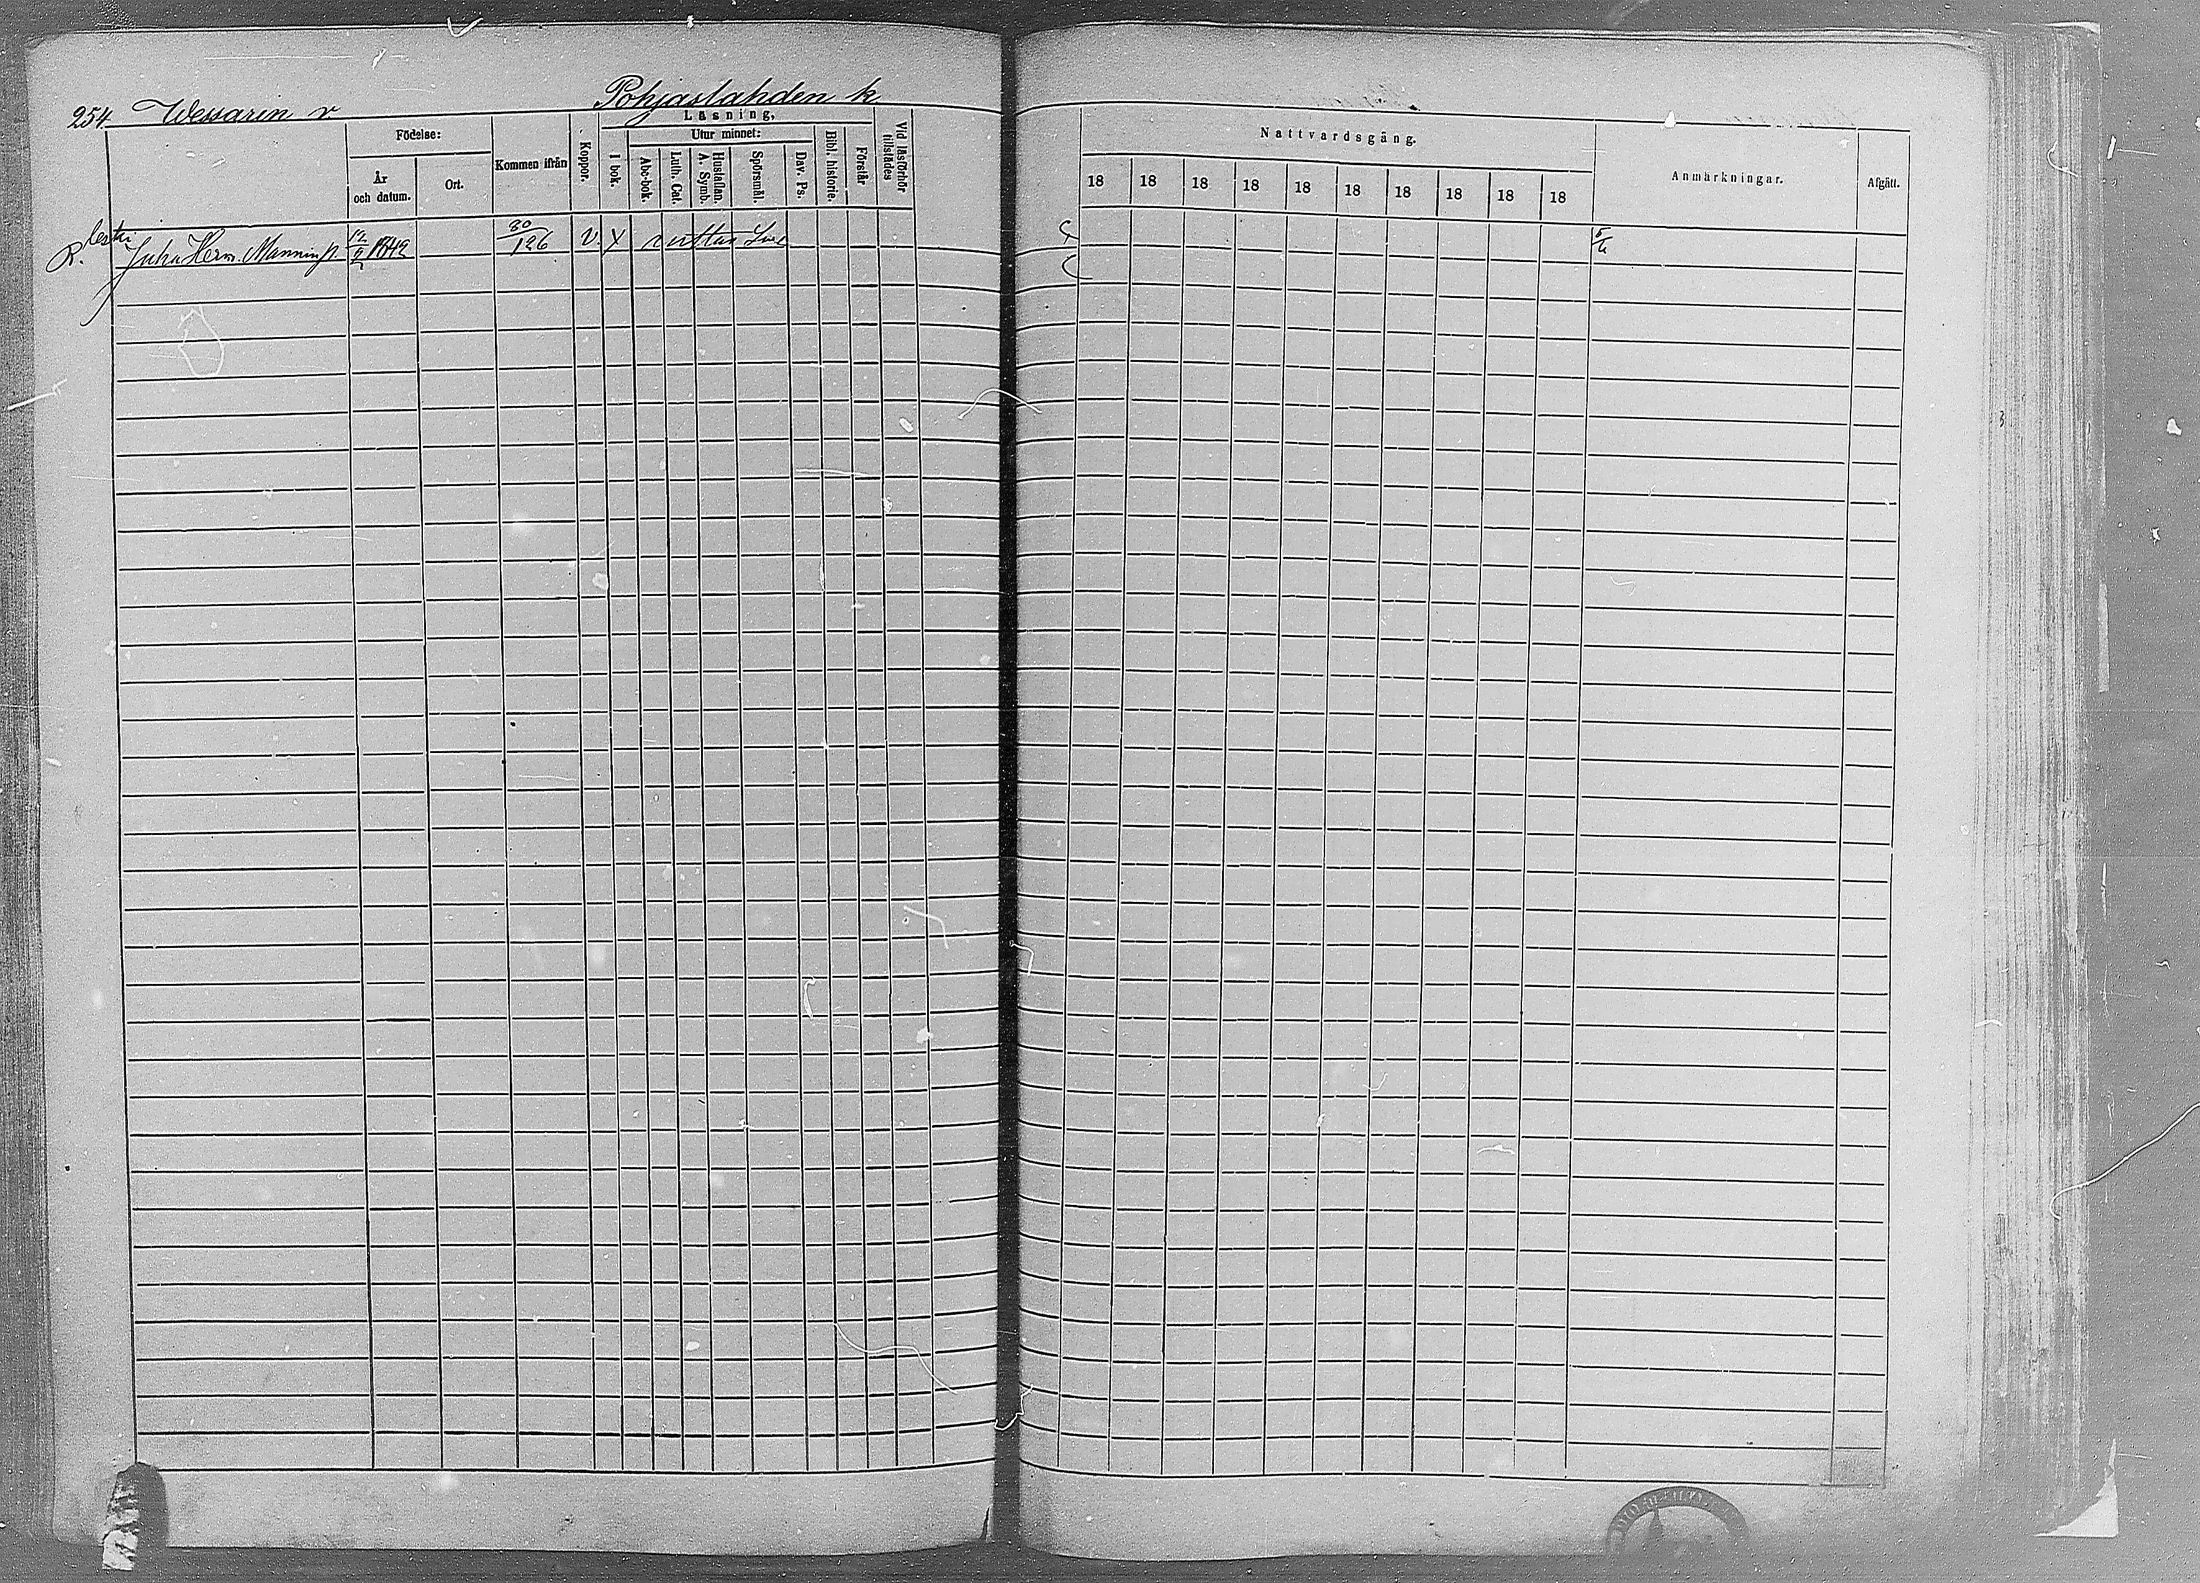 254. Wessarin r Pohjaslahden k
Födelse:
År och datum.
Ort.
Kommen ifrån
Koppor.
Läsning,
I bok.
Utur minnet:
Abc-bok.
Luth. Cat.
Hustaflan. A. Symb.
Spörsmål.
Dav. Ps.
Bibl. historie.
Förstår
Vid läsförhör tillstädes
Nattvardsgång.
18 18 18 18 18 18 18 18 18 18
Anmärkningar.
Afgått.
leski
R. Juha Herm. 1842 80/126 v X